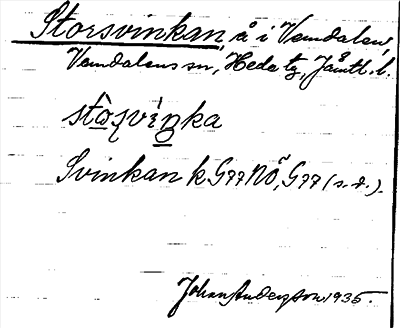 Storsvinkan, å i Vemdalen,
Vemdalens sn, Hede tg, Jämtl. l.
Svinkan k G77 NÖ, G77 (s. d.).
Johan Anderzon 1935.